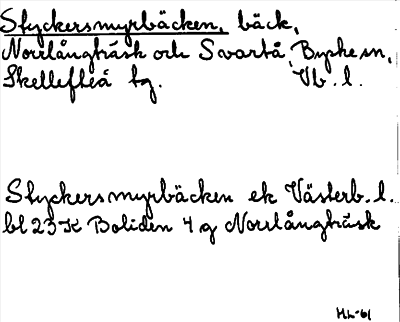 Styckersmyrbäcken, bäck,
Norrlångträsk och Svartå, Byske sn,
Skellefteå tg. Vb. l.
Styckersmyrbäcken ek Västerb. l.
bl 23 K Boliden 4 g Norrlångträsk
H.L-61